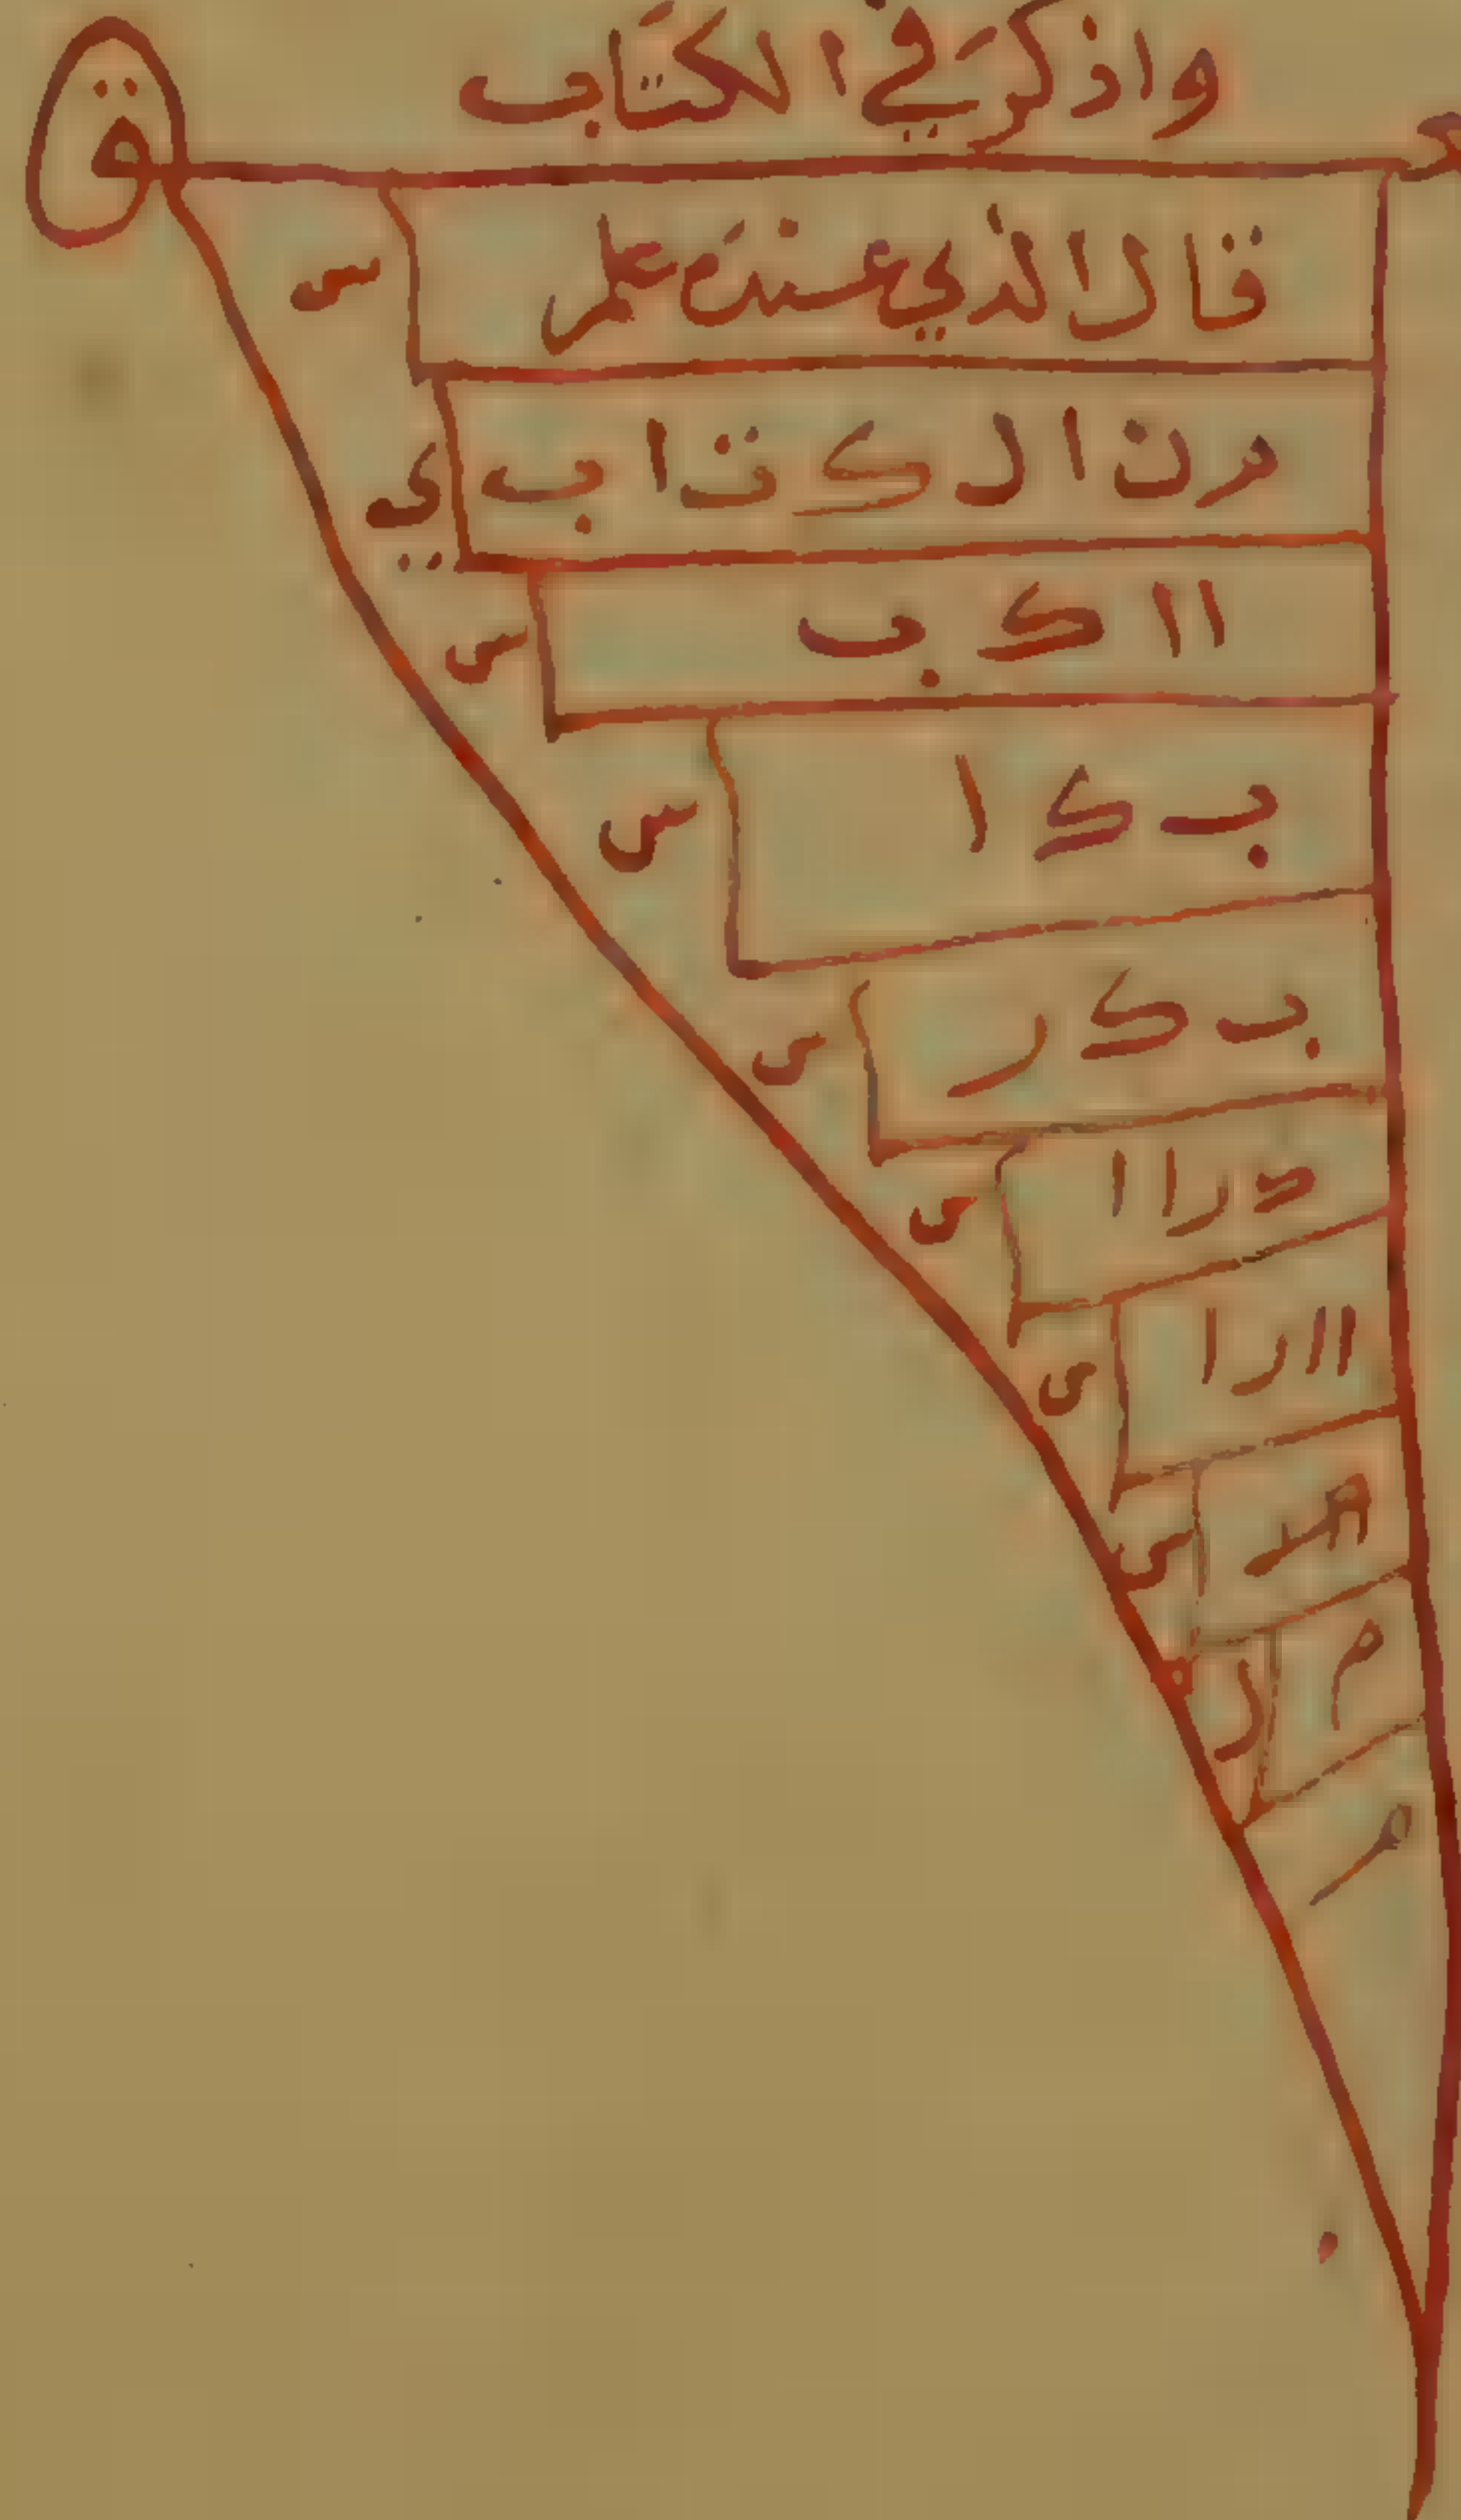 واذكر في الكتاب
ق
قال الذي عنده علم س
من ال ك ت ا ب ي
ا ا ك ب س
ب ك ا س
ب ك ر س
د ر ا ا س
ا ا ر ا س
س
م ر
م